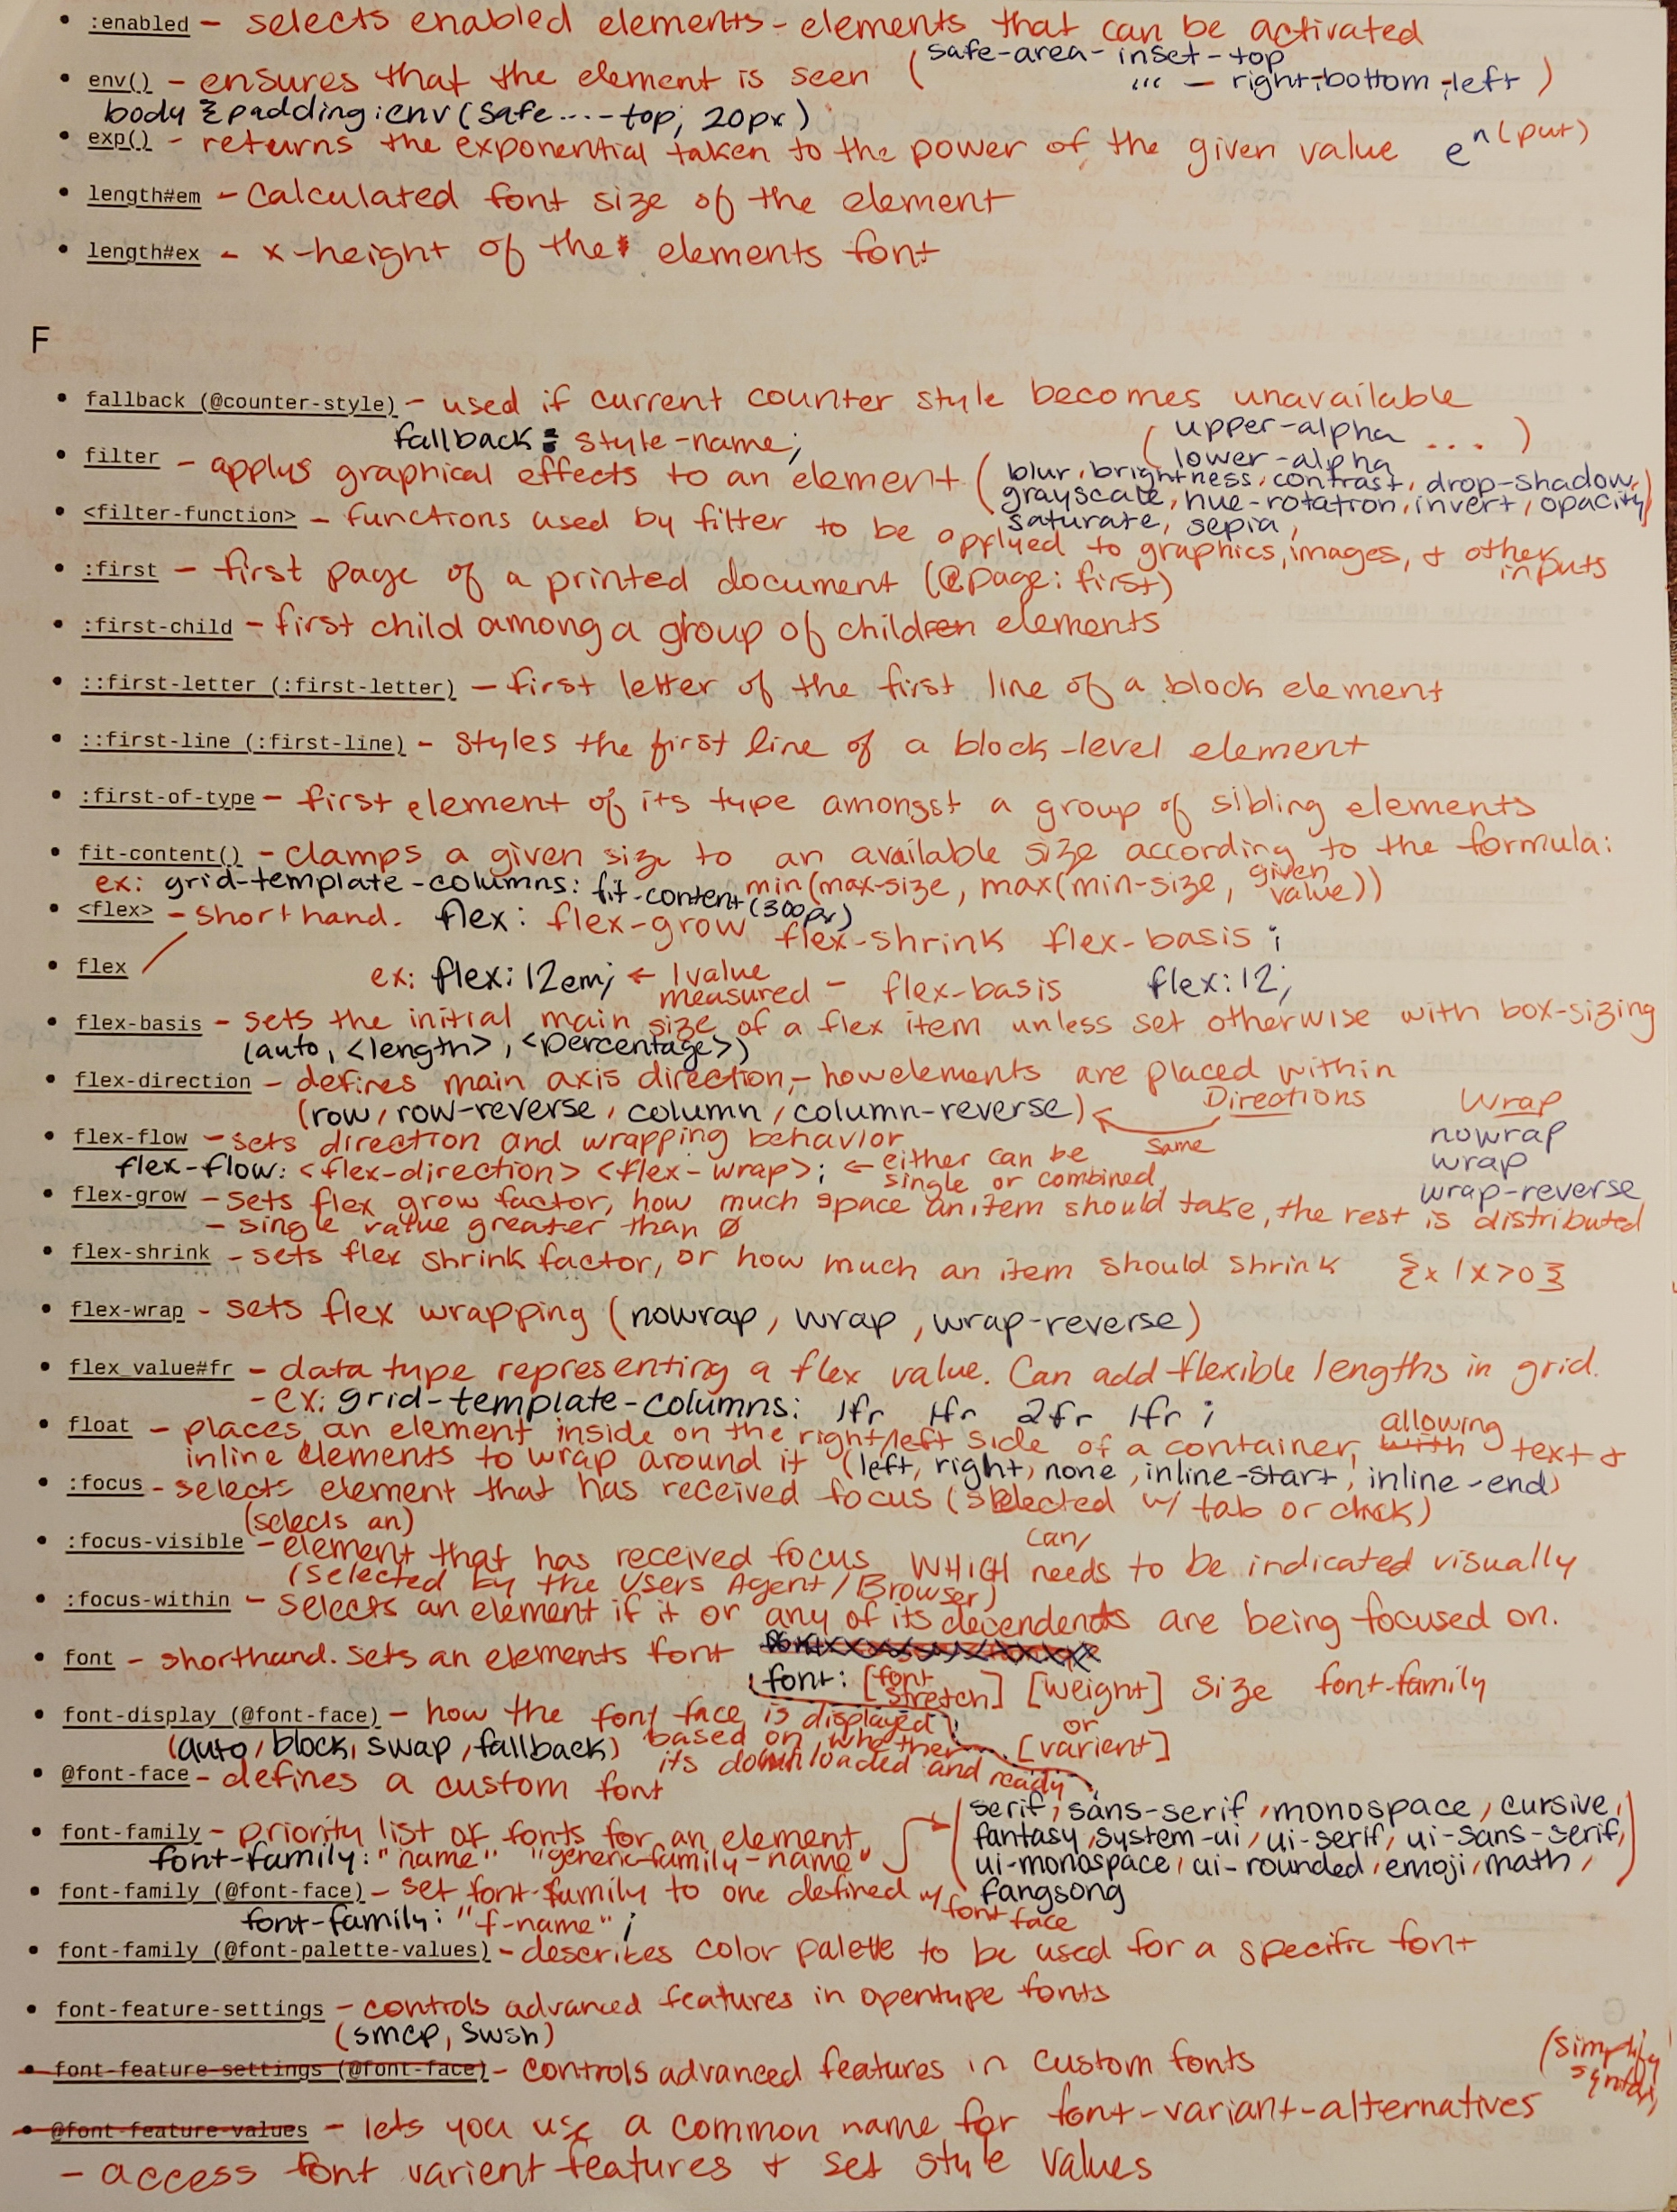 • :enabled – selects enabled elements - elements that can be activated
• env() – ensures that the element is seen (safe-area-inset-top
''' – right,-bottom,-left)
body {padding: env(safe....-top, 20px)
• exp() – returns the exponential taken to the power of the given value e^n(put)
• length#em – Calculated font size of the element
• length#ex – x-height of the elements font
F
• fallback (@counter-style) – used if current counter style becomes unavailable
fallback: style-name; (upper-alpha ... )
lower-alpha
• filter – applys graphical effects to an element (blur, brightness, contrast, drop-shadow,
grayscale, hue-rotation, invert, opacity)
saturate, sepia,
• <filter-function> – functions used by filter to be applyed to graphics, images, & other
inputs
• :first – first page of a printed document (@page: first)
• :first-child – first child among a group of children elements
• ::first-letter (:first-letter) – first letter of the first line of a block element
• ::first-line (:first-line) – styles the first line of a block-level element
• :first-of-type – first element of its type amongst a group of sibling elements
• fit-content() – clamps a given size to an available size according to the formula:
ex: grid-template-columns: fit-content(300px) min(max-size, max(min-size, given value))
• <flex> – shorthand. flex: flex-grow flex-shrink flex-basis;
• flex
ex: flex: 12em; ← 1 value
measured – flex-basis flex: 12;
• flex-basis – sets the initial main size of a flex item unless set otherwise with box-sizing
(auto, <length>, <percentage>)
• flex-direction – defines main axis direction, – how elements are placed within
(row, row-reverse, column, column-reverse) Directions Wrap
Same nowrap
wrap
wrap-reverse
• flex-flow – sets direction and wrapping behavior
flex-flow: <flex-direction> <flex-wrap>; ← either can be
single or combined
• flex-grow – sets flex grow factor, how much space an item should take, the rest is distributed
– single value greater than 0
• flex-shrink – sets flex shrink factor, or how much an item should shrink {x | x>0}
• flex-wrap – sets flex wrapping (nowrap, wrap, wrap-reverse)
• flex_value#fr – data type representing a flex value. Can add flexible lengths in grid.
– ex: grid-template-columns: 1fr 1fr 2fr 1fr;
• float – places an element inside on the right/left side of a container, with allowing text &
inline elements to wrap around it (left, right, none, inline-start, inline-end)
• :focus – selects element that has received focus (selected w/ tab or click)
(selects an)
• :focus-visible – element that has received focus WHICH can/ needs to be indicated visually
(selected by the Users Agent/Browser)
• :focus-within – selects an element if it or any of its decendends are being focused on.
• font – shorthand. Sets an elements font
font: [font stretch] [weight] size font-family
or
[varient]
• font-display (@font-face) – how the font face is displayed
(auto, block, swap, fallback) based on whether
its downloaded and ready
• @font-face – defines a custom font
• font-family – priority list of fonts for an element
font-family: "name" "generic-family-name"
(serif, sans-serif, monospace, cursive,
fantasy, system-ui, ui-serif, ui-sans-serif,
ui-monospace, ui-rounded, emoji, math,
fangsong
• font-family (@font-face) – set font-family to one defined w/ font face
font-family: "f-name";
• font-family (@font-palette-values) – describes color palette to be used for a specific font
• font-feature-settings – controls advanced features in opentype fonts
(smcp, swsh)
• font-feature-settings (@font-face) – controls advanced features in custom fonts
(simplify
syntax)
• @font-feature-values – lets you use a common name for font-variant-alternatives
– access font varient features & set style values